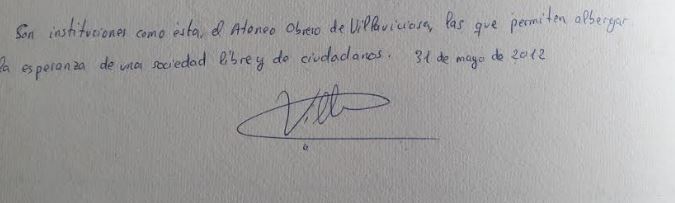 Son instituciones como ésta, el Ateneo Obrero de Villaviciosa, las que permiten albergar
la esperanza de una sociedad libre y de ciudadanos. 31 de mayo de 2012